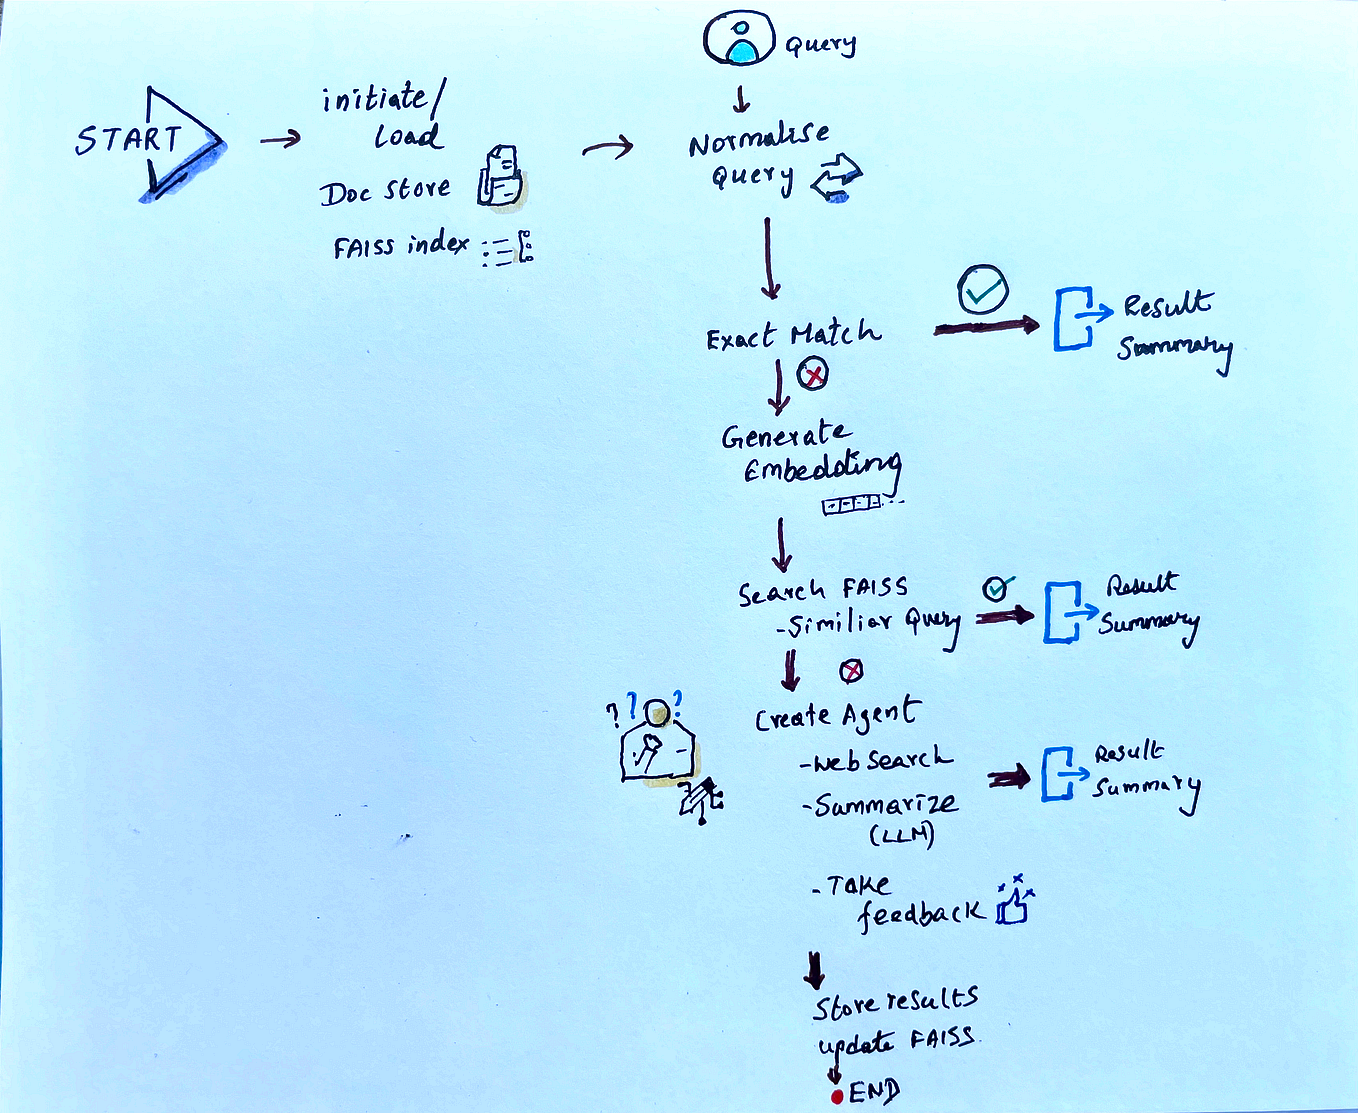 Query
START
initiate/
Load
Doc store
FAISS index
Normalise
Query
Exact Match
Result
Summary
Generate
Embedding
Search FAISS
-Similiar Query
Result
Summary
? ? ?
Create Agent
-Web Search
-Summarize
(LLM)
Result
Summary
-Take
feedback
Store results
update FAISS.
END